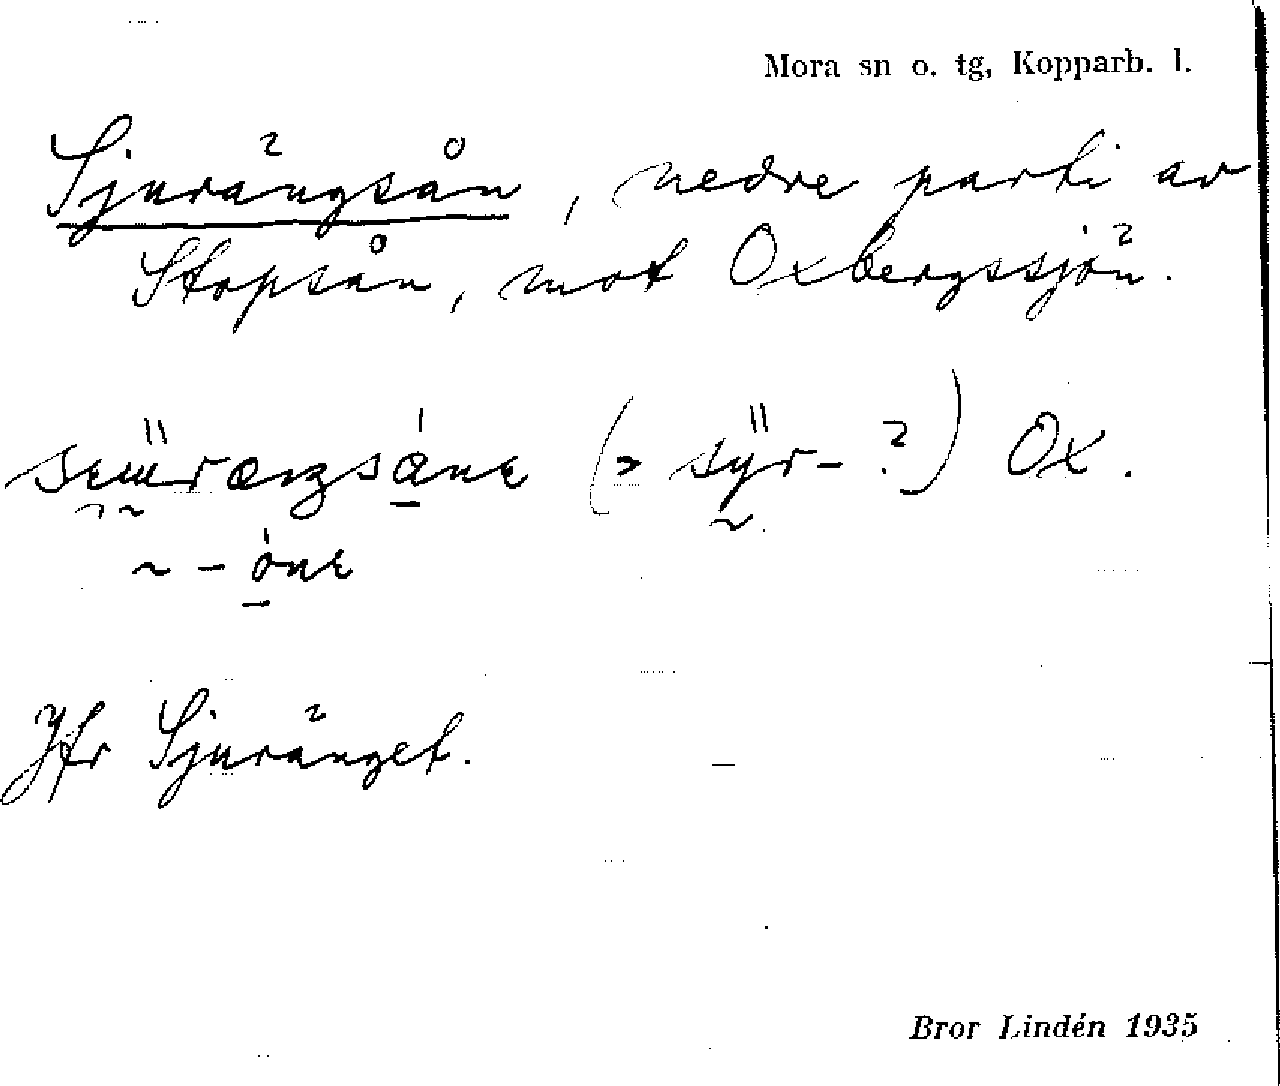 Mora sn o. tg, Kopparb. l.
Sjurängsån, nedre parti av
Stopsån, mot Oxbergssjön.
Ox.
Jfr Sjuränget.
Bror Lindén 1935